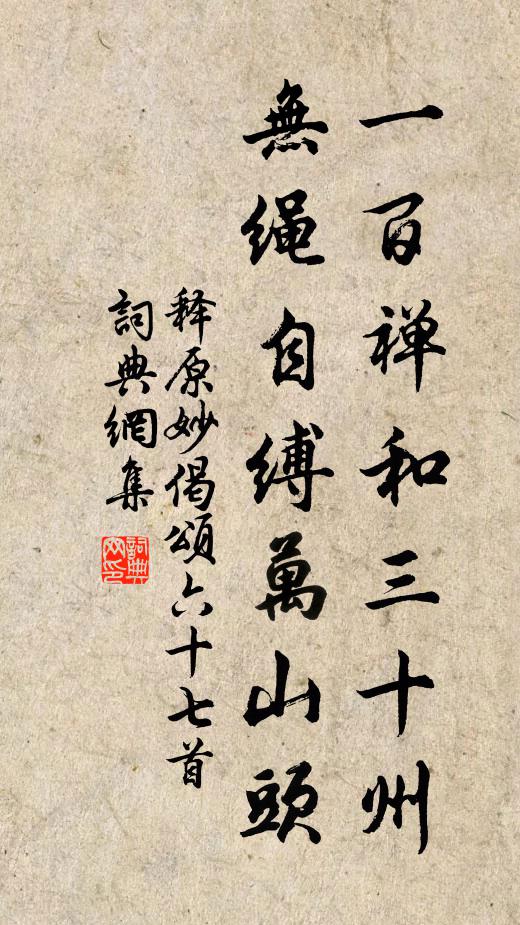 一百禅和三十州
無绳自缚萬山頭
释原妙偈頌六十七首
詞典網集
詞典
网印